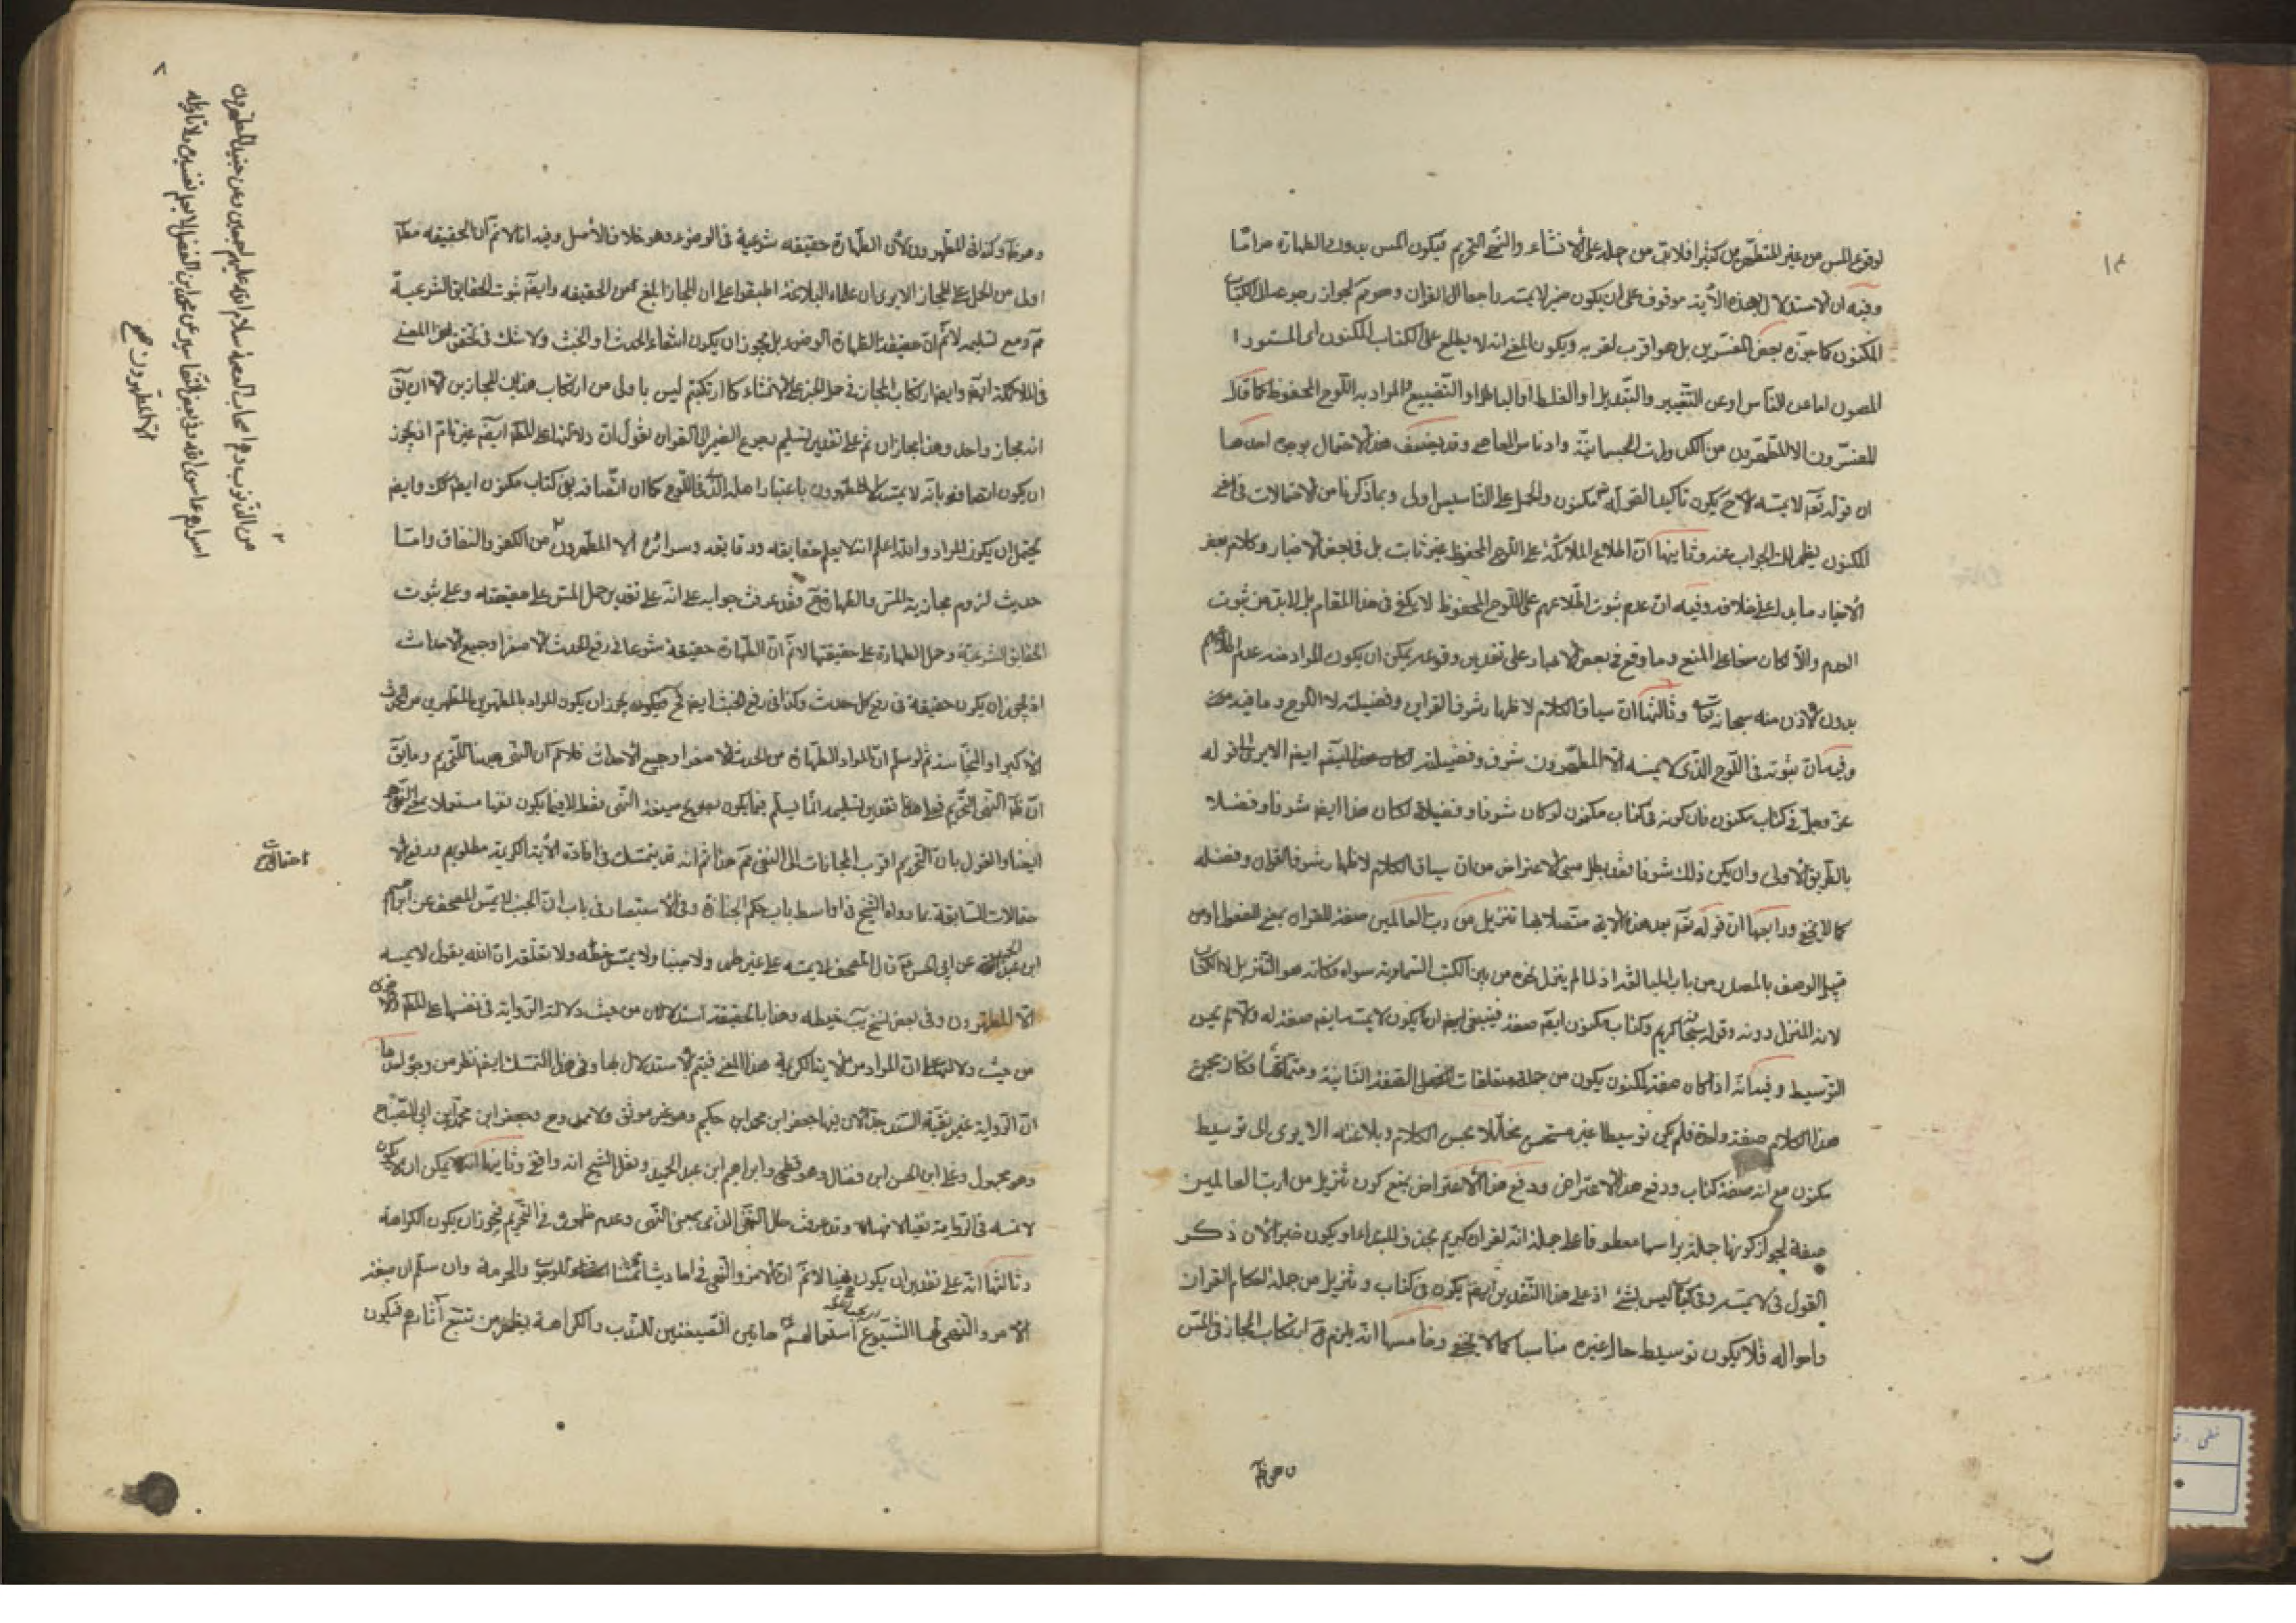 لوقوع المس من غير المتطهرين كثيرا فلابد من حمله على الانشاء والنهى التحريم فيكون المس بدون الطهارة حراما
وفيه ان الاستدلال بهذه الآية موقوف على ان يكون ضمير لا يمسه راجعا الى القران وهو مم لجواز رجوعه الى الكتاب
المكنون كما جوزه بعض المفسرين بل هو اقرب لقربه ويكون المعنى انه لا يطلع على الكتاب المكنون اى المستور
المصون اما عن الناس او عن التغيير والتبديل او الغلط او الباطل او التضييع والمراد به اللوح المحفوظ كما قال
المفسرون الا المطهرون من الكدورات الجسمانية وادناس المعاصى وقد يضعف هذا الاحتمال بوجوه احدها
ان قوله تعه لا يمسه الاح يكون تاكيدا لقوله مكنون والحمل على التاسيس اولى وبما ذكرنا من الاحتمالات فى معنى
المكنون يظهر لك الجواب عنه وثانيها ان اطلاع الملائكة على اللوح المحفوظ غير ثابت بل فى بعض الاخبار وكلام بعض
الاخيار ما يدل على خلافه وفيه ان عدم ثبوت اطلاعهم على اللوح المحفوظ لا يكفى فى هذا المقام بل لابد من ثبوت
العدم والا لكان منعا على المنع وما وقع فى بعض الاخبار على تقدير وقوعه يمكن ان يكون المراد منه عدم اطلاعهم
بدون الاذن منه سبحانه وثالثها ان سياق الكلام لاظهار شرف القران وفضيلته لا اللوح وما فيه
وفيه ان ثبوته فى اللوح الذى لا يمسه الا المطهرون شرف وفضيلة ايضا الا يرى الى قوله
عز وجل فى كتاب مكنون فان كونه فى كتاب مكنون لو كان شرفا وفضيلة لكان هذا ايضا شرفا وفضلا
بالطريق الاولى وان لم يكن ذلك شرفا فقد بطل مبنى الاعتراض من ان سياق الكلام لاظهار شرف القران وفضله
كما لا يخفى ورابعها ان قوله تعه بعد هذه الآية متصلا بها تنزيل من رب العالمين صفة للقران بمعنى المفعول او من
قبيل الوصف بالمصدر من باب المبالغة اذ لما لم ينزل نحوه من بين الكتب السماوية سواه فكانه هو التنزيل لا الكتاب
لانه المنزل دونه وقوله سبحانه كريم وكتاب مكنون ايضا صفة فينبغى ان يكون لا يمسه ايضا صفة له والا لم يحسن
التوسيط وفيه انه اذا كان صفة لمكنون يكون من جملة متعلقات الصفة الثانية ومتمماتها فكان مجموع
هذا الكلام صفة واحدة فلم يكن توسيطا غير مستحسن مخلا بحسن الكلام وبلاغته الا يرى الى توسيط
مكنون مع انه صفة كتاب ودفع هذا الاعتراض بمنع كون تنزيل من رب العالمين
صفة لجواز كونها جملة براسها معطوفا على جملة انه لقران كريم بحذف المبتدا او يكون خبرا لان ذكر
القول فى لا يمسه وفى كتاب ليس بشئ اذ على هذا التقدير ايضا يكون فى كتاب وتنزيل من جملة احكام القران
واحواله فلا يكون توسيط حال غيره مناسبا كما لا يخفى وخامسها انه يلزم ارتكاب المجاز فى المس
وكذا فى المطهرون لان الطهارة حقيقة شرعية فى الوضوء وهو خلاف الاصل وفيه انا لا نم ان الحقيقة مطلقا
اولى من الحمل على المجاز الا يرى ان علماء البلاغة اطبقوا على ان المجاز ابلغ من الحقيقة وايضا ثبوت الحقايق الشرعية
مم ومع تسليمه لا نم ان حقيقة الطهارة الوضوء بل يجوز ان يكون انتفاء الحدث او الخبث ولا شك فى تحقق هذا المعنى
فى الملائكة ايضا وايضا ارتكاب المجاز فى حمل الخبر على الانشاء كما ارتكبتم ليس باولى من ارتكاب هذين المجازين الا ان يق
انه مجاز واحد وهذا مجازان ثم على تقدير تسليم رجوع الضمير الى القران نقول ان دلالتها على المط ايضا غير تام اذ يجوز
ان يكون اتصافه بانه لا يمسه الا المطهرون باعتبار اصله الذى فى اللوح كما ان اتصافه بفى كتاب مكنون ايضا كك وايضا
يحتمل ان يكون المراد والله اعلم انه لا يعلم حقايقه ودقايقه وسرائره الا المطهرون من الكفر والنفاق واما
حديث لزوم مجازية المس والطهارة ح فقد عرفت جوابه على انه على تقدير حمل المس على حقيقته وعلى ثبوت
الحقايق الشرعية وحمل الطهارة على حقيقتها لا نم ان الطهارة حقيقة شرعا فى رفع الحدث الاصغر او جميع الاحداث
اذ يجوز ان يكون حقيقة فى رفع كل حدث وكذا فى رفع الخبث ايضا فح يجوز ان يكون المراد بالمطهرين المطهرين من الحدث
الاكبر او النجاسة ثم لو سلم ان المراد الطهارة من الحدث الاصغر او جميع الاحداث فلا نم ان النهى ههنا للتحريم وما يق
ان ظ النهى التحريم فعلى تقدير تسليمه انما يسلم فيما يكون بصريح صيغة النهى فقط لا فيما يكون نفيا مستعملا بمعنى النهى
ايضا والقول بان التحريم اقرب المجازات الى النفى مم هذا ثم انه قد يتمسك فى افادة الآية الكريمة مطلوبهم ودفع الا
حتمالات السابقة بما رواه الشيخ فى اواسط باب حكم الجنابة وفى الاستبصار فى باب ان الجنب لا يمس المصحف عن ابراهيم
ابن عبد الحميد عن ابى الحسن قال المصحف لا تمسه على غير طهر ولا جنبا ولا تمس خطه ولا تعلقه ان الله يقول لا يمسه
الا المطهرون وفى بعض نسخ يب خيطه وهذا بالحقيقة استدلالان من حيث دلالة الرواية فى نفسها على المط والاخرى
من حيث دلالتها على ان المراد من الآية الكريمة هذا المعنى فيتم الاستدلال بها وفى هذا التمسك ايضا نظر من وجوه احدها
ان الرواية غير نقية السند جدا لان فيها جعفر ابن محمد ابن حكيم وهو غير موثق ولا ممدوح وجعفر ابن محمد ابن ابى الصباح
وهو مجهول وعلى ابن الحسن ابن فضال وهو فطحى وابراهيم ابن عبد الحميد ونقل الشيخ انه واقفى وثانيها انه يمكن ان لا يكون
لا تمسه فى الرواية نهيا وقد عرفت حال النفى الذى بمعنى النهى وعدم ظهوره فى التحريم فيجوز ان يكون الكراهة
وثالثها انه على تقدير ان يكون نهيا لا نم ان الامر والنهى فى احاديث ائمتنا للوجوب والحرمة وان سلم ان صيغة
الامر والنهى لهما لشيوع استعمالهم هاتين الصيغتين للندب والكراهة يظهر من تتبع آثارهم فيكون
من الذنوب وهم اصحاب العصمة سلام الله عليهم اجمعين وعن جنيد المطهرون
اسرارهم عما سوى الله وفى بعض التفاسير عن محمد ابن الفضل لا يعلم تفسيره ولا تاويله
الا المطهرون صح
احتمالات